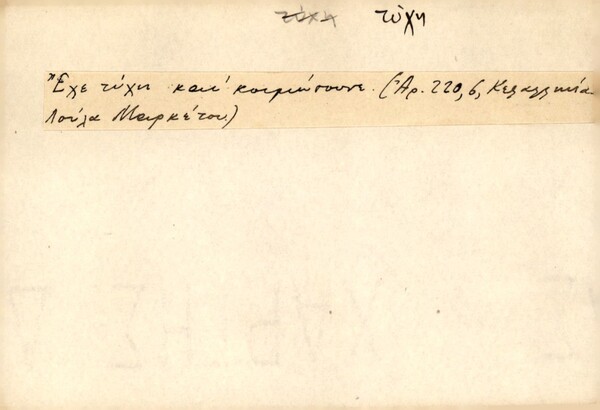 τύχη τύχη
Ἔχε τύχη καὶ κοιμώσουνε. (Ἀρ. 220, 6, Κεφαλληνία
Λούλα Μαρκέτου)